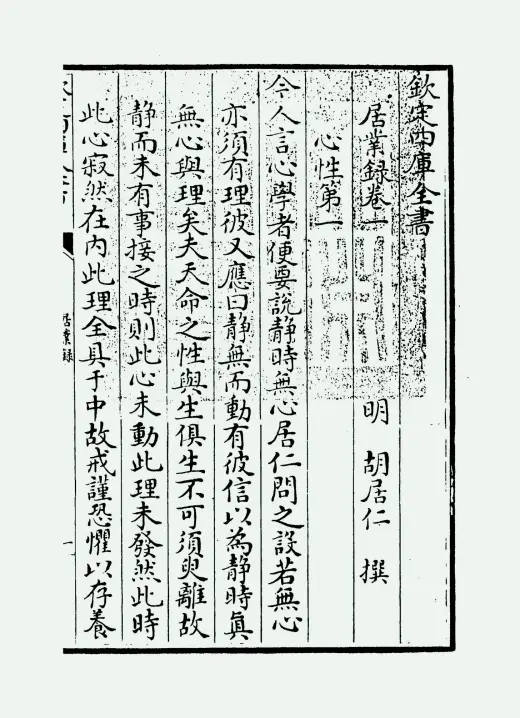 欽定四庫全書
居業錄卷一
明 胡居仁 撰
心性第一
今人言心學者便要說靜時無心居仁問之設若無心
亦須有理彼又應曰靜無而動有彼信以為靜時眞
無心與理矣夫天命之性與生俱生不可須臾離故
靜而未有事接之時則此心未動此理未發然此時
此心寂然在内此理全具于中故戒謹恐懼以存養
居業錄
一